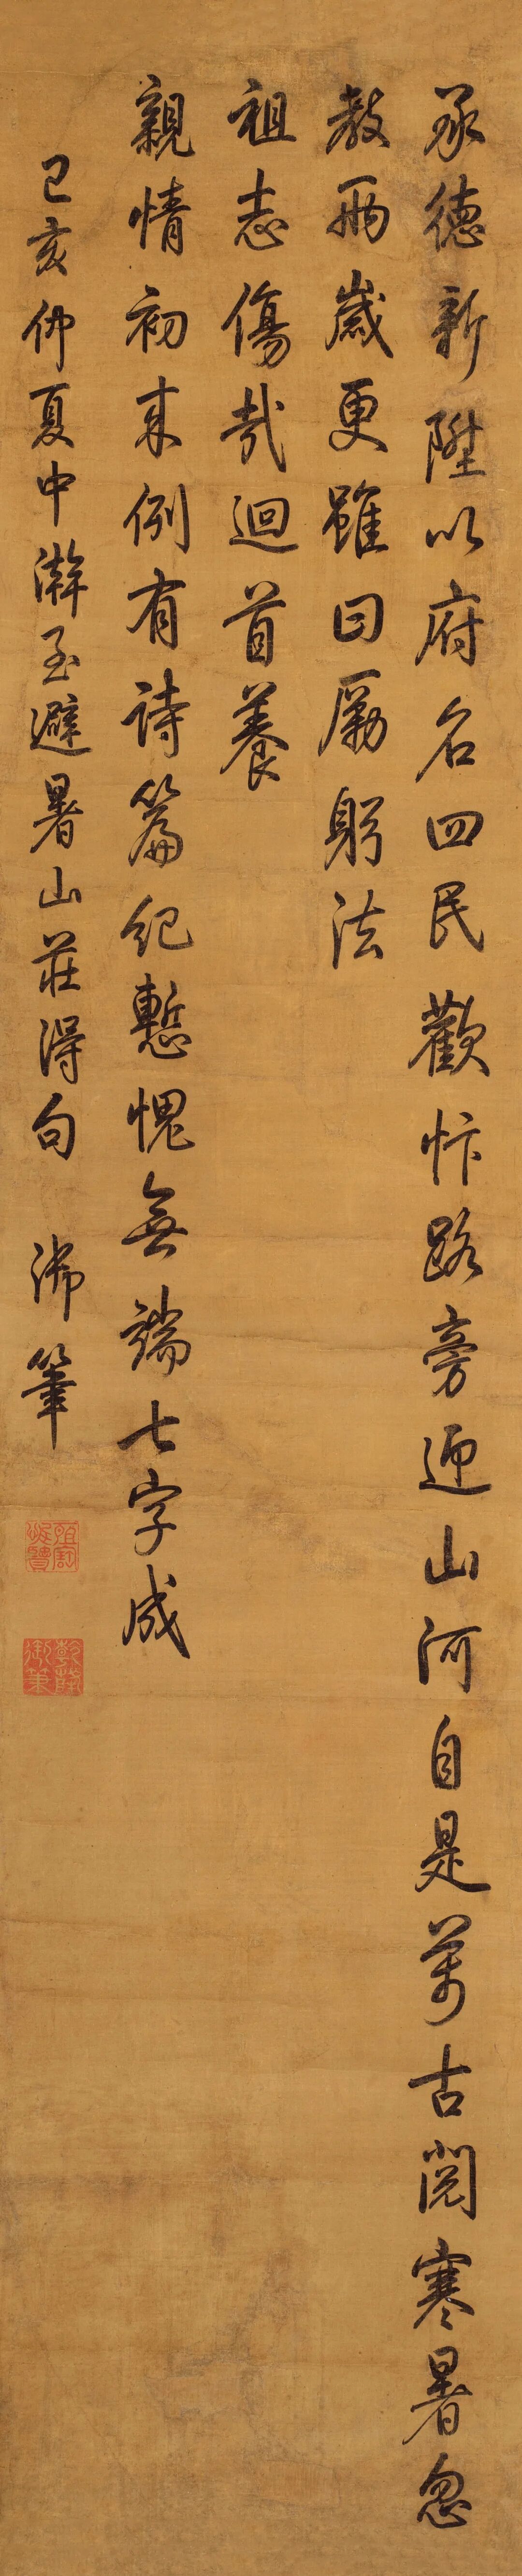 承德新陞以府名四民歡忭路旁迎山河自是萬古閱寒暑忽
教兩歲更雖曰勵躬法
祖志傷哉迴首養
親情初來例有詩篇紀慙愧無端七字成
己亥仲夏中澣至避暑山莊得句 御筆
乾隆御筆